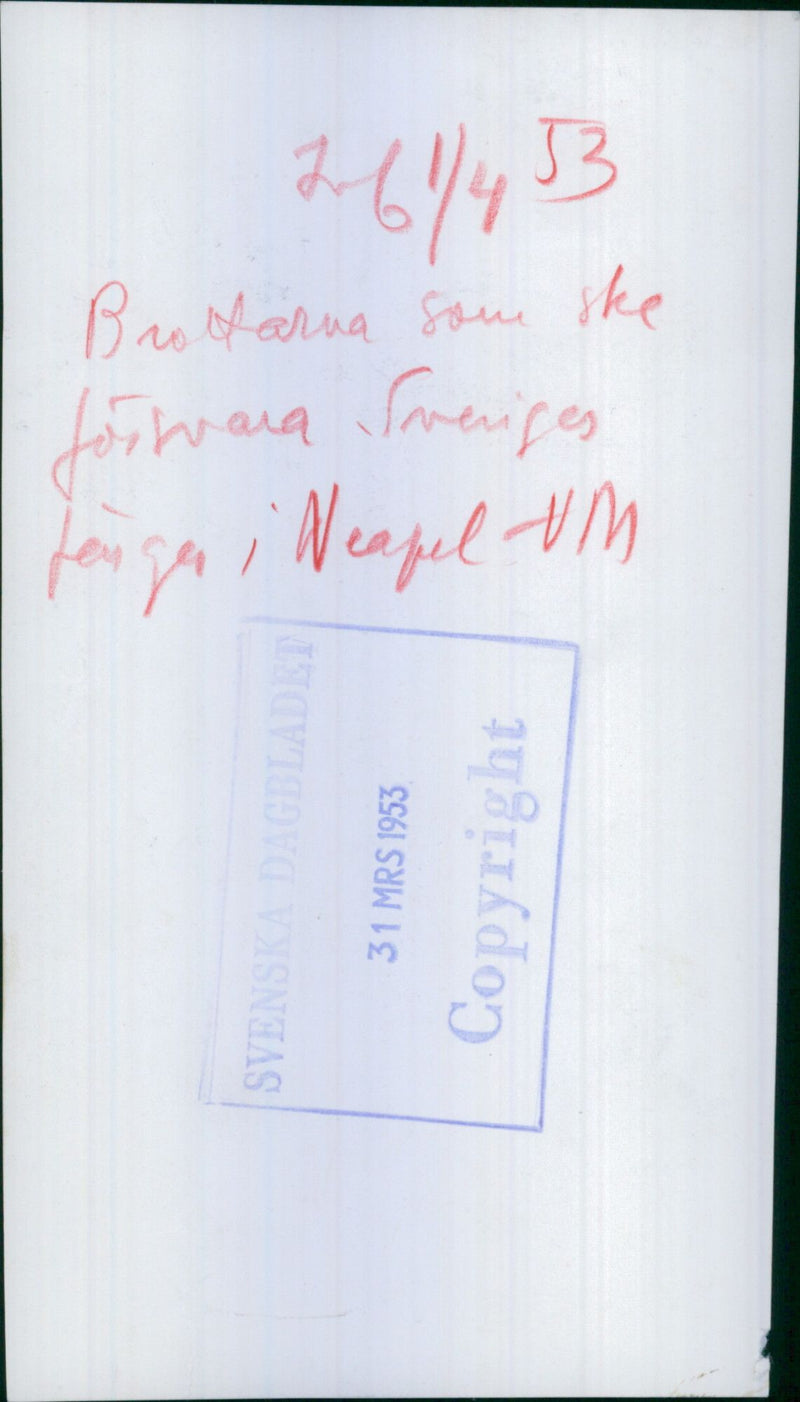 26 1/4 53
Brottarna som ska
försvara Sveriges
färger i Neapel-VM
SVENSKA DAGBLADET
31 MRS 1953
Copyright